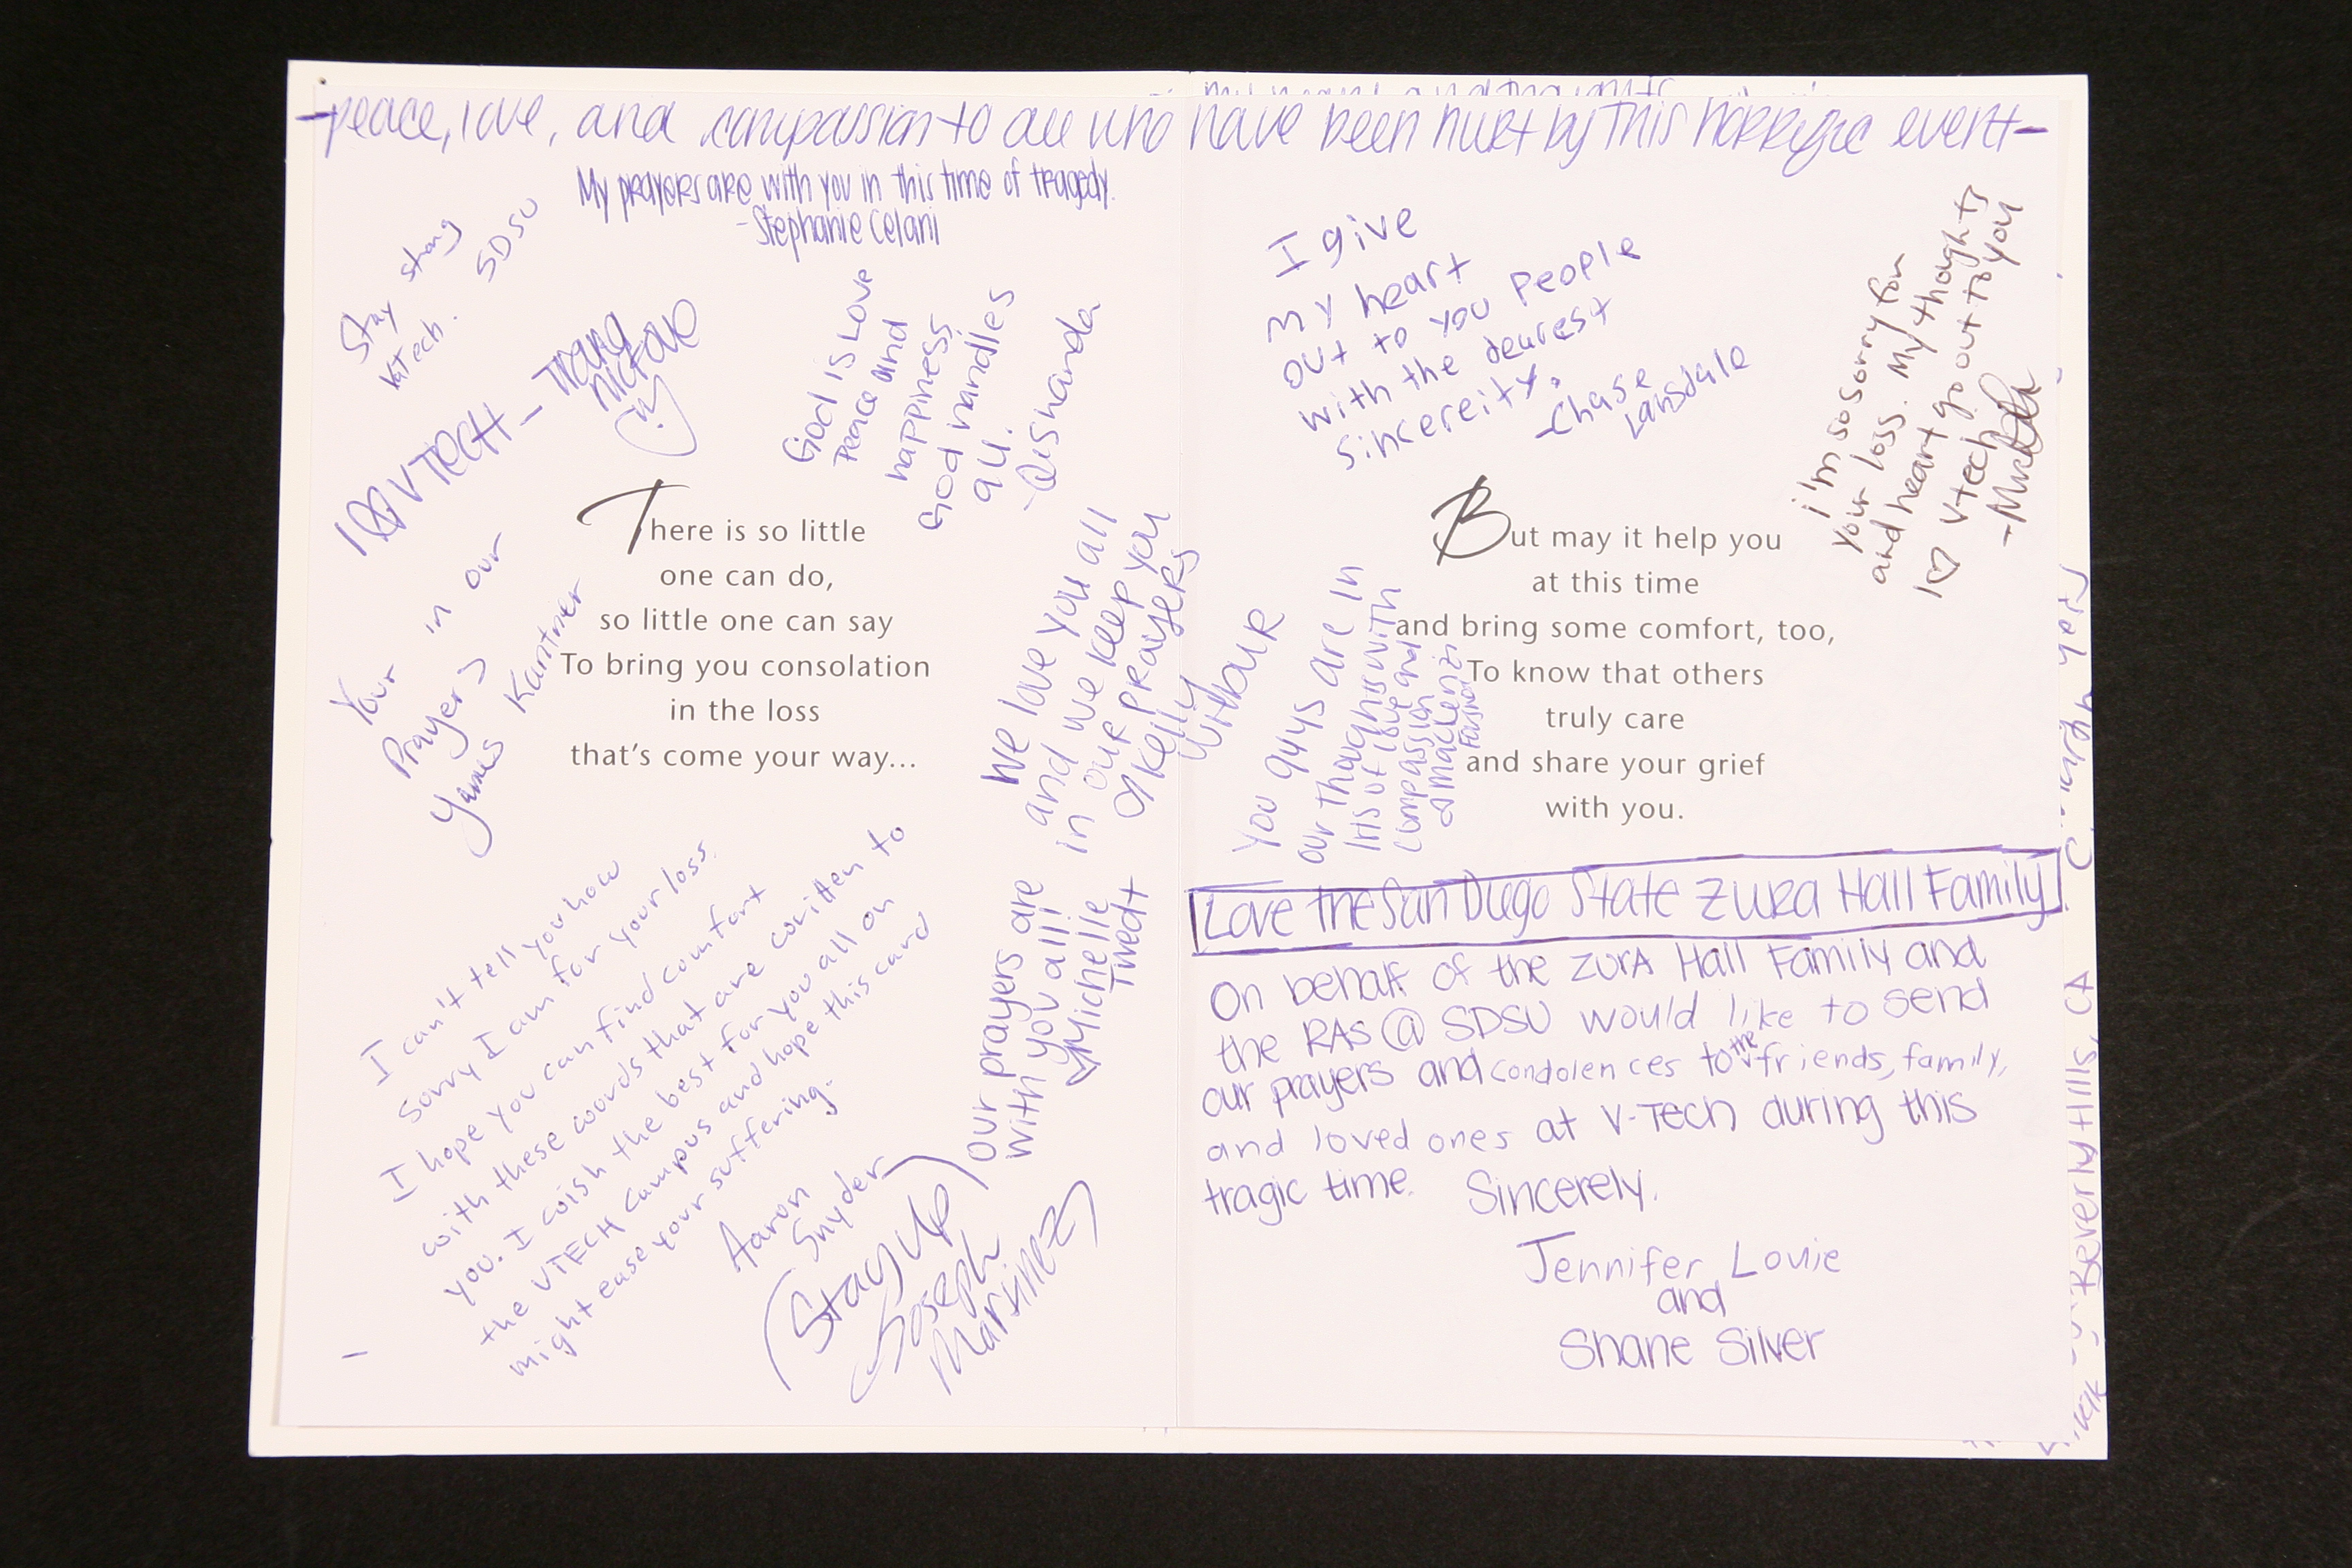 -peace, love, and compassion to all who have been hurt by this horrific event-
My prayers are with you in this time of tragedy.
-Stephanie Celani
Stay strong
Vtech. SDSU
VTECH -
God is Love
Peace and
happiness
God handles
all.
There is so little
one can do,
so little one can say
To bring you consolation
in the loss
that's come your way...
Your in our
Prayers
James Kantner
We love you all
and we keep you
in our prayers
Kelly
Wilbur
I can't tell you how
sorry I am for your loss.
I hope you can find comfort
with these words that are written to
you. I wish the best for you all on
the VTECH campus and hope this card
might ease your suffering.
Aaron
Snyder
our prayers are
with you all!
Michelle
Twedt
Stay up
Joseph
Martinez
I give
my heart
out to you people
with the dearest
sincereity.
-Chase
Lansdale
i'm so sorry for
your loss. My thoughts
and heart go out to you
I ♡ Vtech
But may it help you
at this time
and bring some comfort, too,
To know that others
truly care
and share your grief
with you.
You guys are in
our thoughts with
lots of love and
compassion
Mackenzi
Love the San Diego State Zura Hall Family
On behalf of the ZurA Hall Family and
the RAS @ SDSU would like to send
our prayers and condolences to the friends, family,
and loved ones at V-Tech during this
tragic time. Sincerely,
Jennifer Louie
and
Shane Silver
Beverly Hills, CA